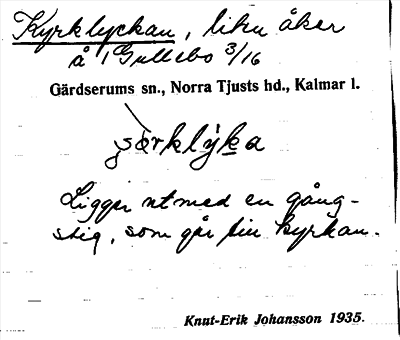 Kyrklyckan, liten åker
å Gullebo 3/16
Gärdserums sn., Norra Tjusts hd., Kalmar l.
Ligger utmed en gång-
stig, som går till kyrkan.
Knut-Erik Johansson 1935.